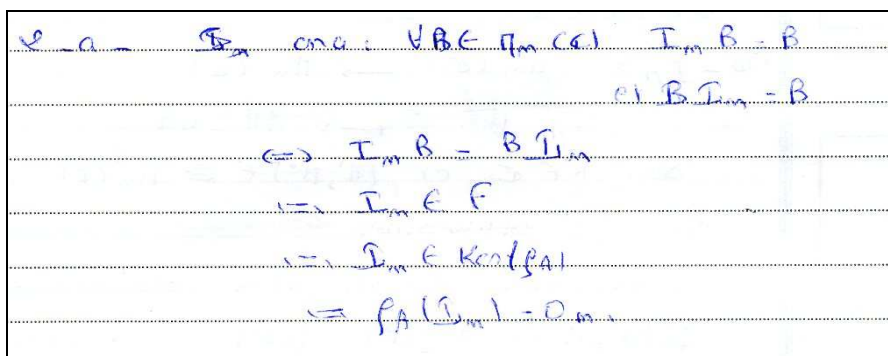 2-a- on a : ∀B ∈ M_n(C) I_n B = B
et B I_n = B
<=> I_n B = B I_n
<=> I_n ∈ F
<=> I_n ∈ Ker(f_A)
<=> f_A(I_n) = 0_n.